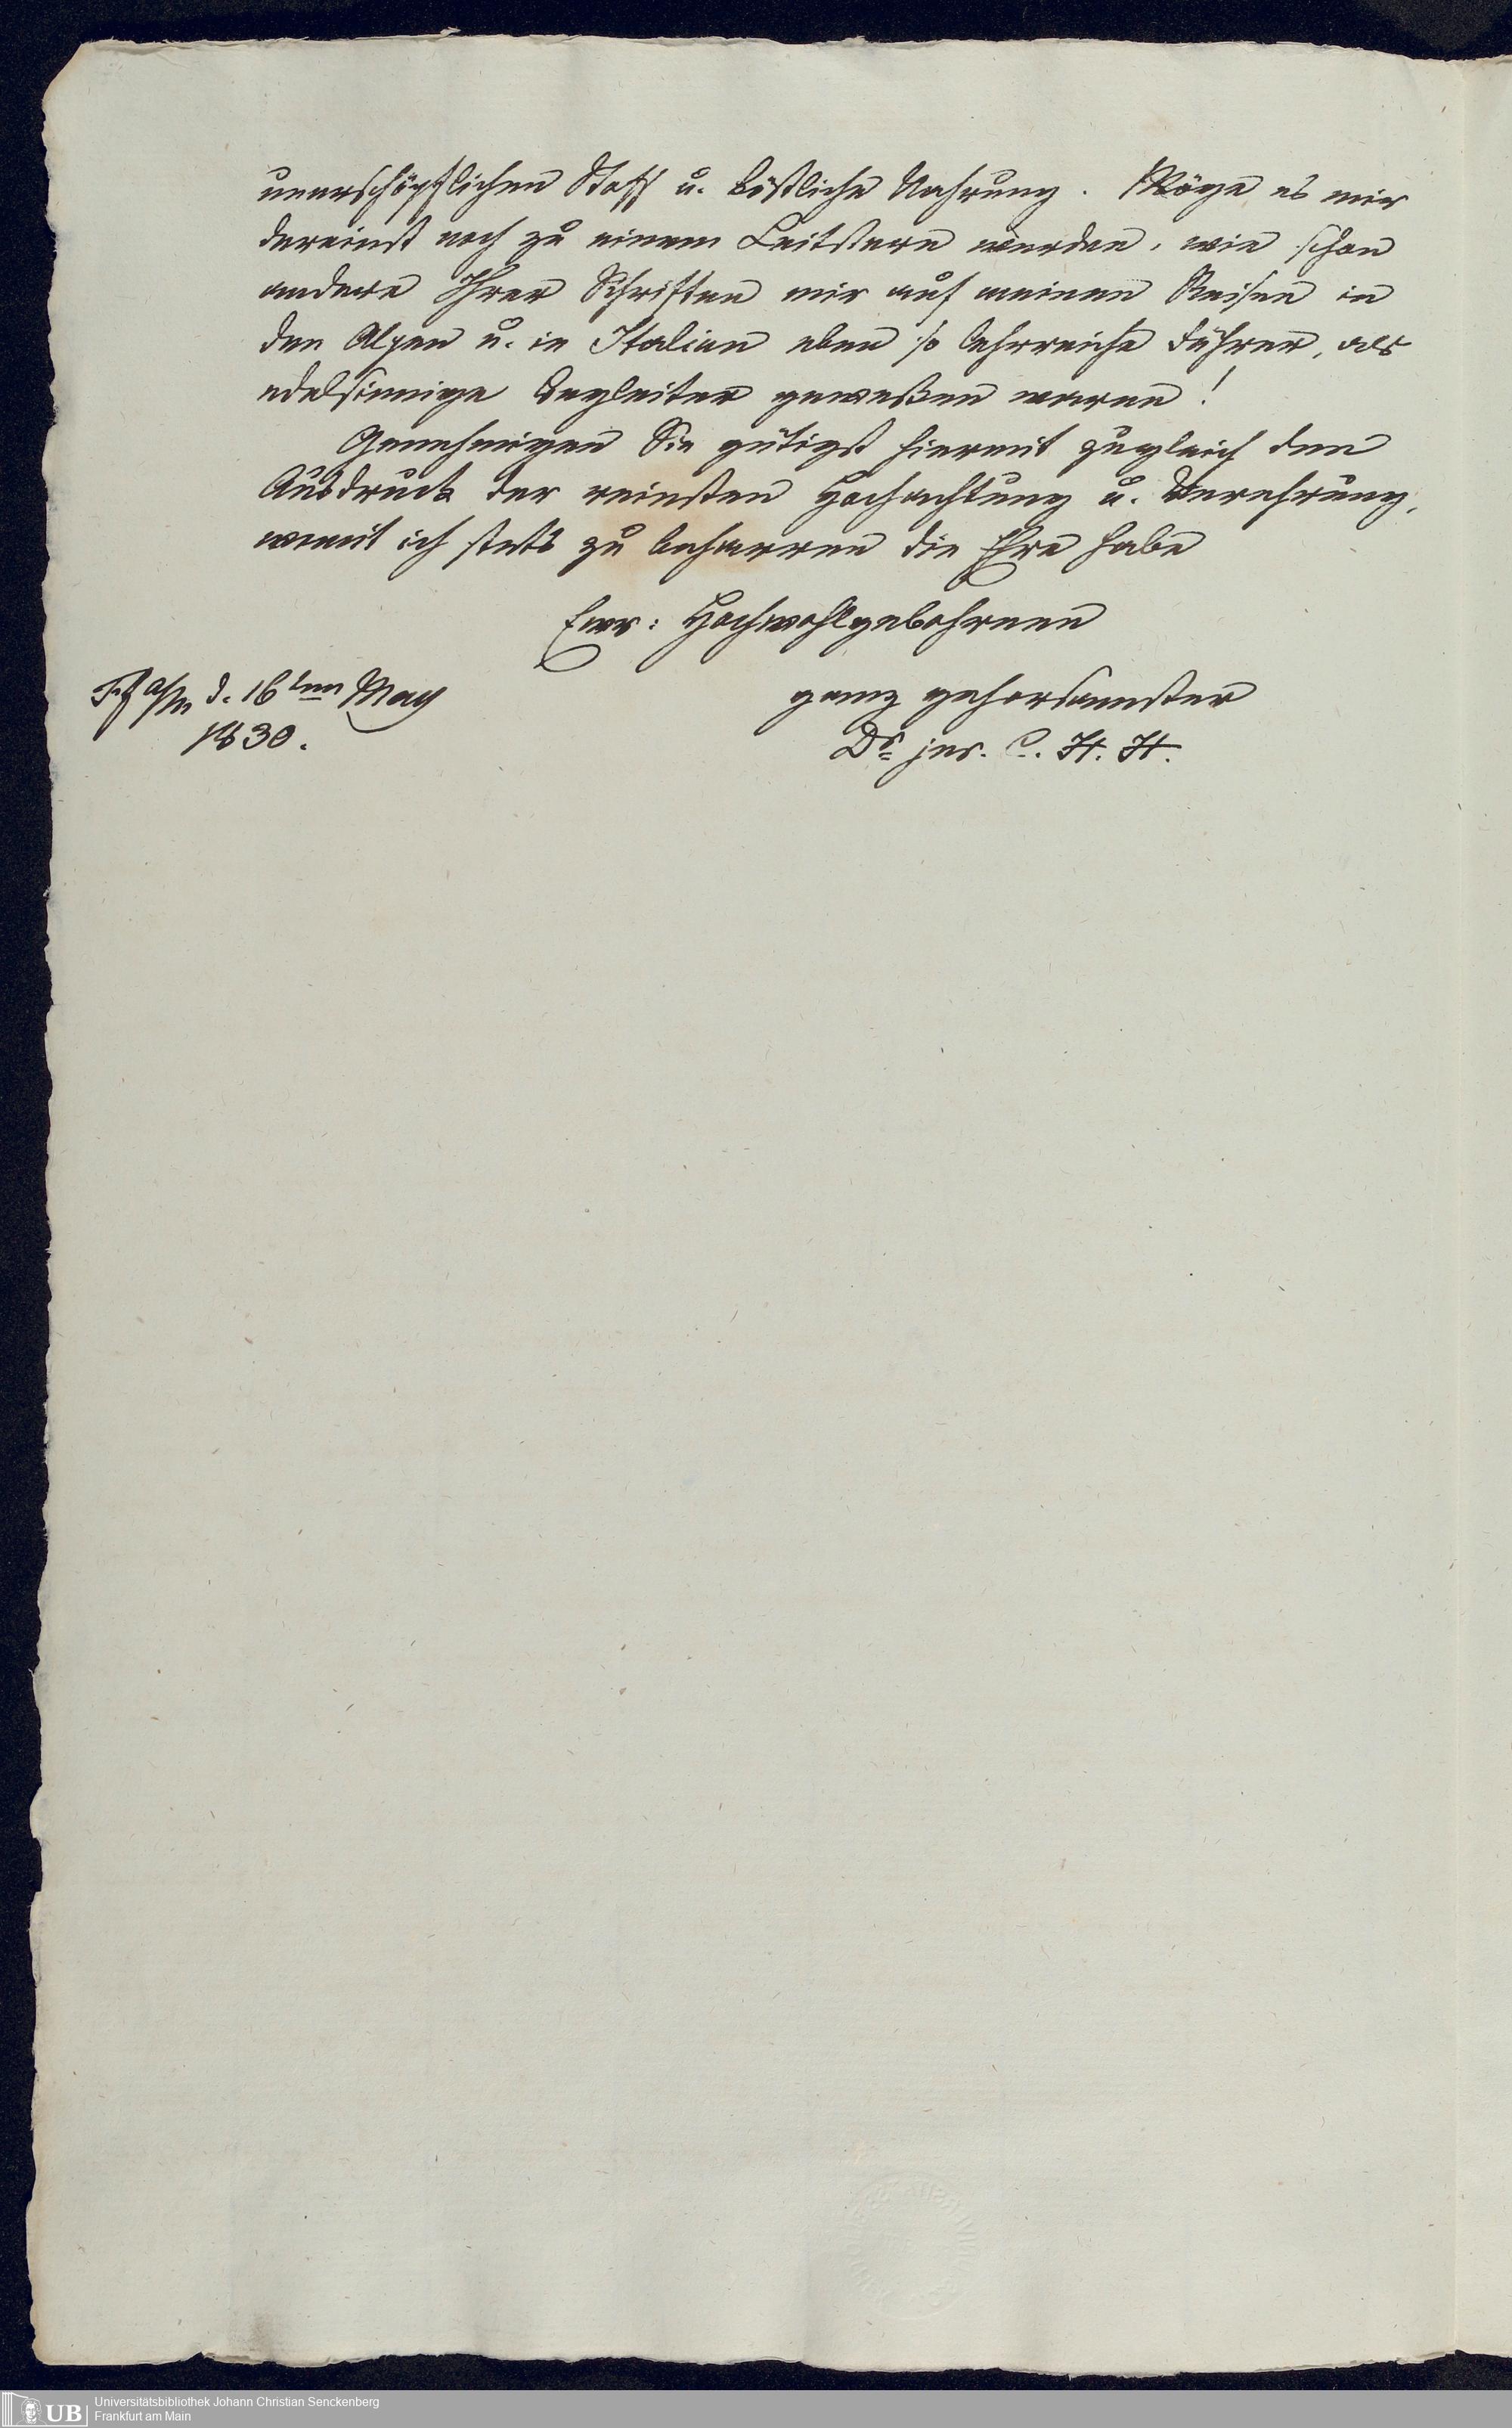 unerschöpflichen Stoff u. köstliche Nahrung. Möge es mir
dereinst noch zu einem Leitstern werden, wie schon
andere Ihrer Schriften mir auf meinen Reisen in
den Alpen u. in Italien eben so lehrreiche Führer, als
edelsinnige Begleiter geweßen waren!
Genehmigen Sie gütigst hiermit zugleich den
Ausdruck der reinsten Hochachtung u. Verehrung,
womit ich stets zu beharren die Ehre habe
Ewr: Hochwohlgebohrnen
Ff a/m d. 16ten May
1830.
ganz gehorsamster
Dr jur. C. H. H.
UB
Universitätsbibliothek Johann Christian Senckenberg
Frankfurt am Main